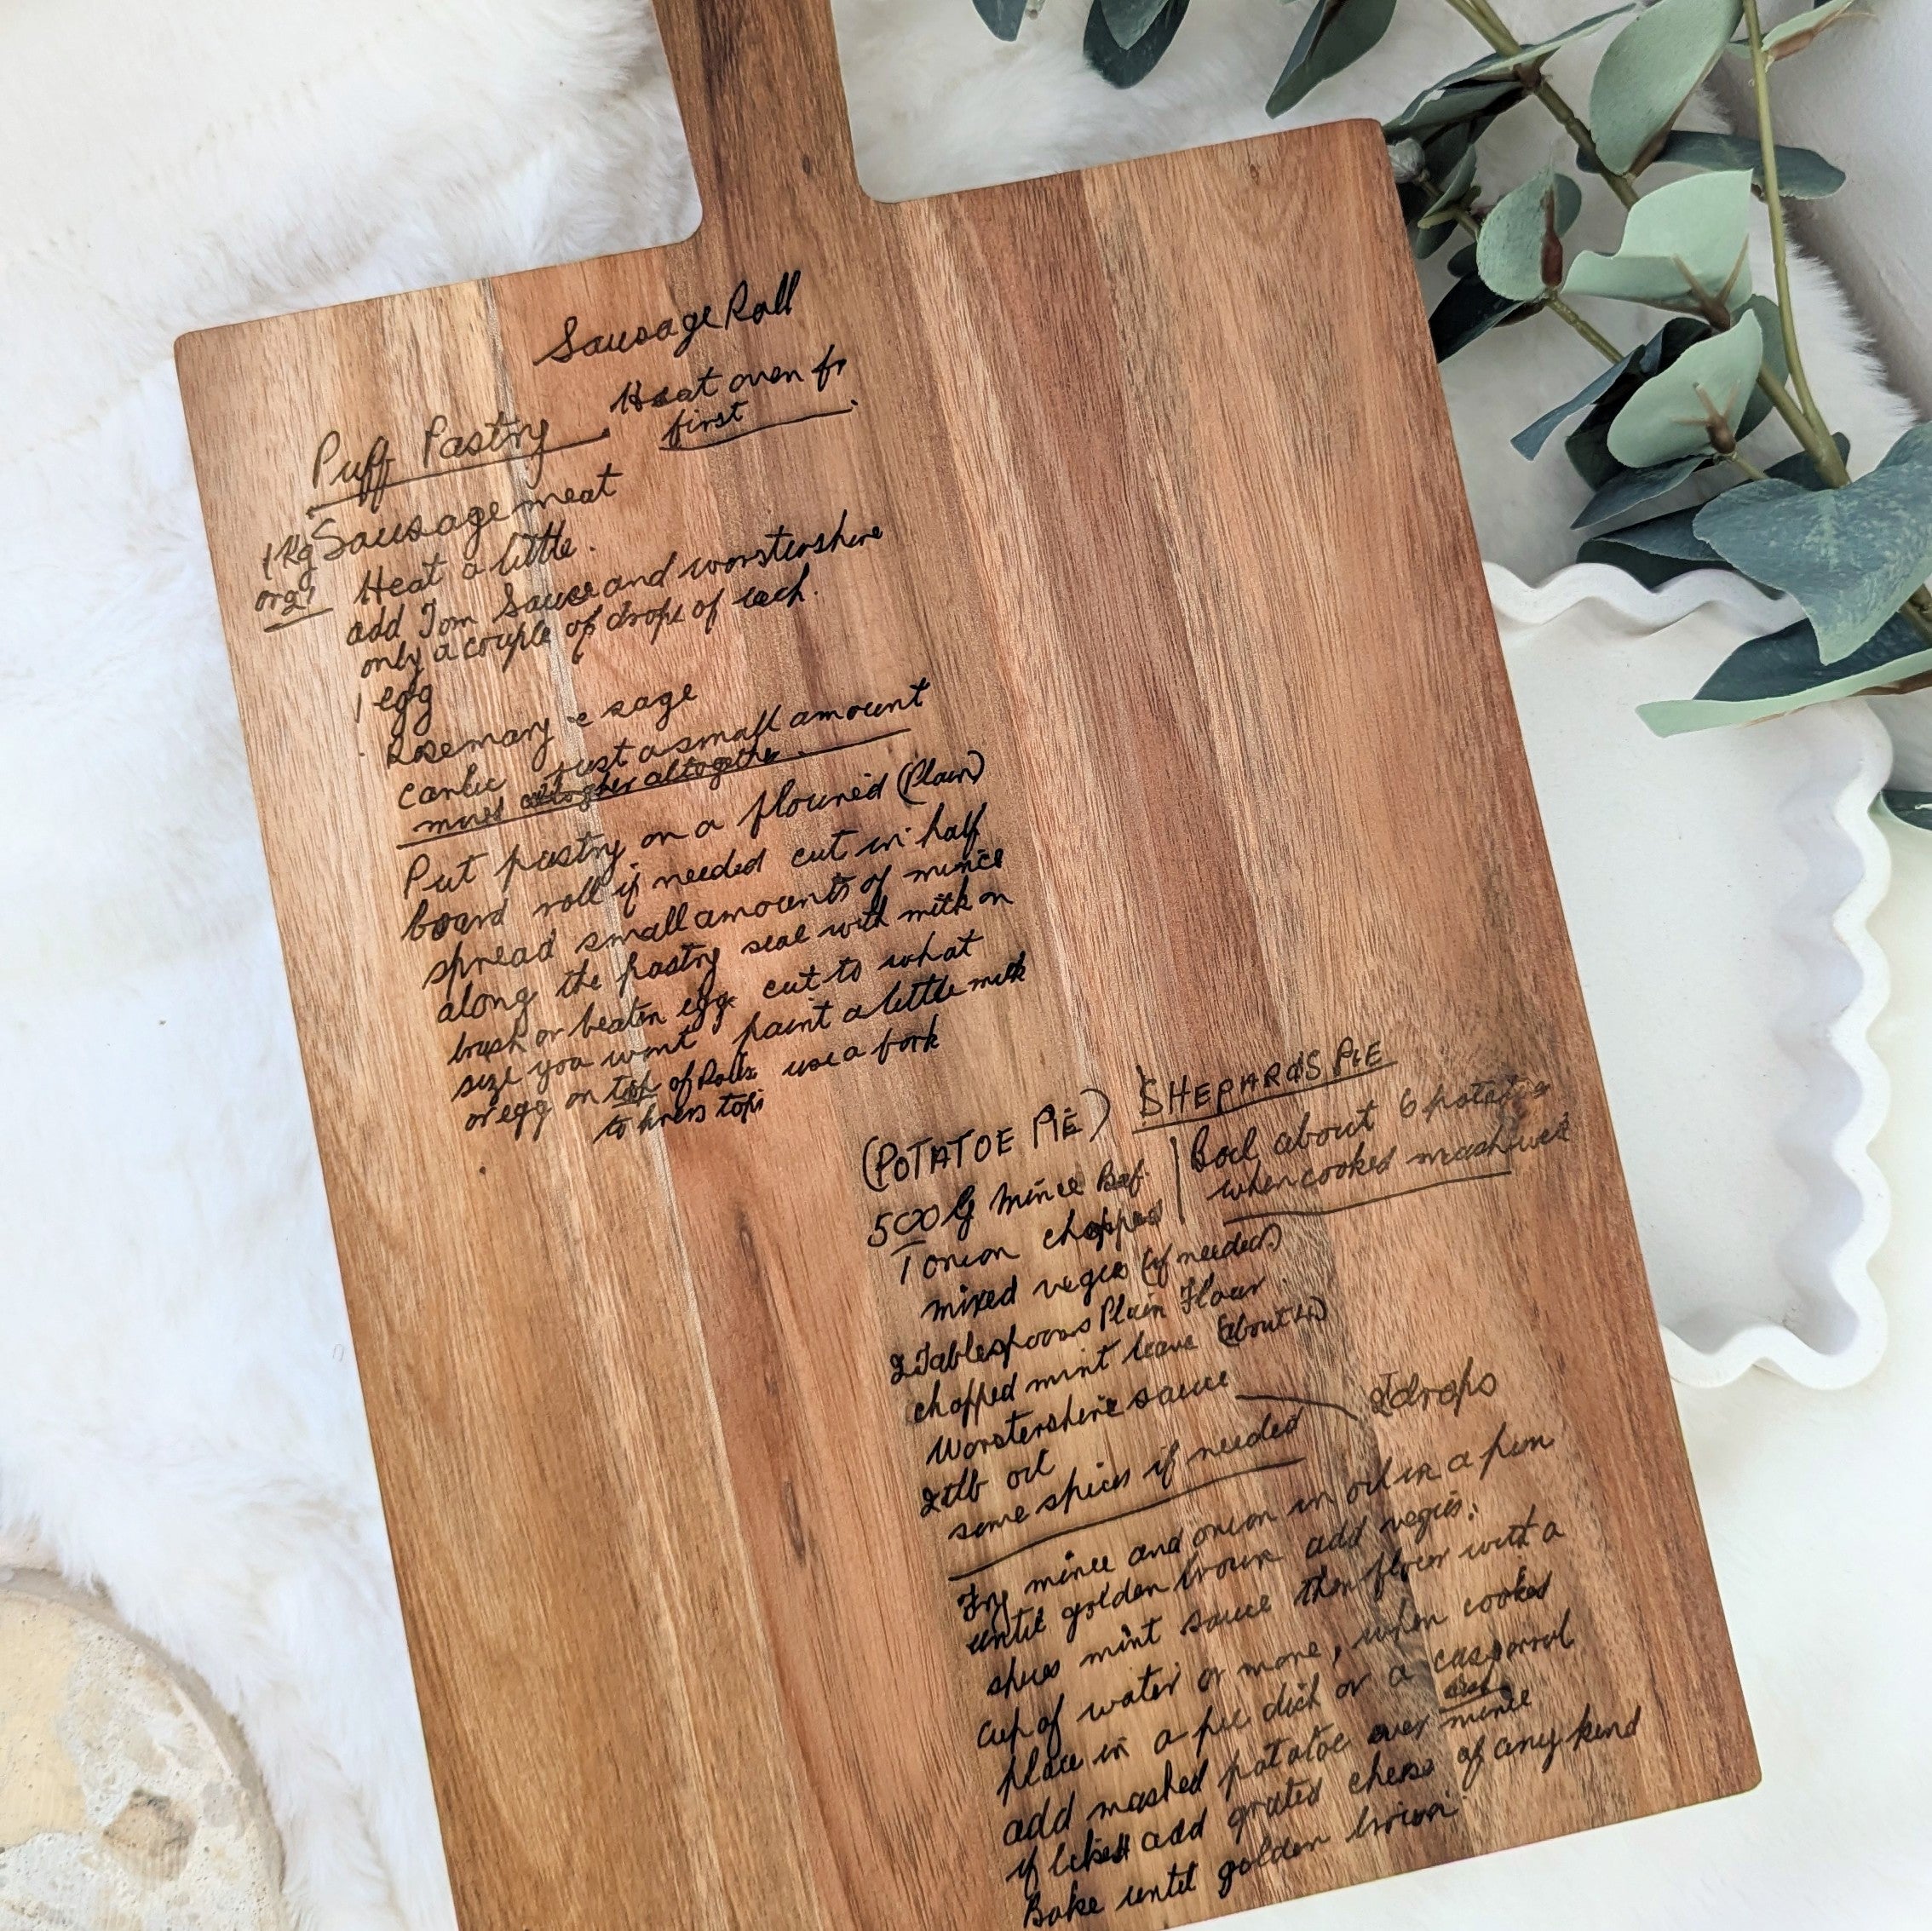 Sausage Roll
Heat oven fr
first
Puff Pastry
1Kg Sausage meat
or 2?
Heat a little.
add Tom Sauce and worstershire
only a couple of drops of each.
1 egg
Rosemary e sage
Garlic Just a small amount
mix altogether.
Put pastry on a floured (Plain)
board roll if needed cut in half
spread small amounts of mince
along the pastry seal with milk on
brush or beaten egg. cut to what
size you want paint a little milk
or egg on top of Rolls use a fork
to press tops
(POTATOE PIE) SHEPARDS PIE
500 G Mince Beef.
1 onion chopped
Boil about 6 potatoes
when cooked mash well
mixed vegies (if needed)
2 Tablespoons Plain Flour
chopped mint leave (about 4)
Worstershire sauce 2 drops
2 tlb oil
some spices if needed
Fry mince and onion in oil in a pan
until golden brown add vegies.
spices mint sauce then flour with a
cup of water or more, when cooked
place in a pie dish or a
add mashed potatoe over mince
if liked add grated cheese of any kind
Bake until golden brown